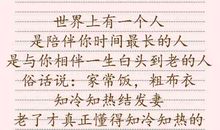 世界上有一个人
是陪伴你时间最长的人
是与你相伴一生白头到老的人
俗话说：家常饭，粗布衣
知冷知热结发妻
老了才真正懂得知冷知热的